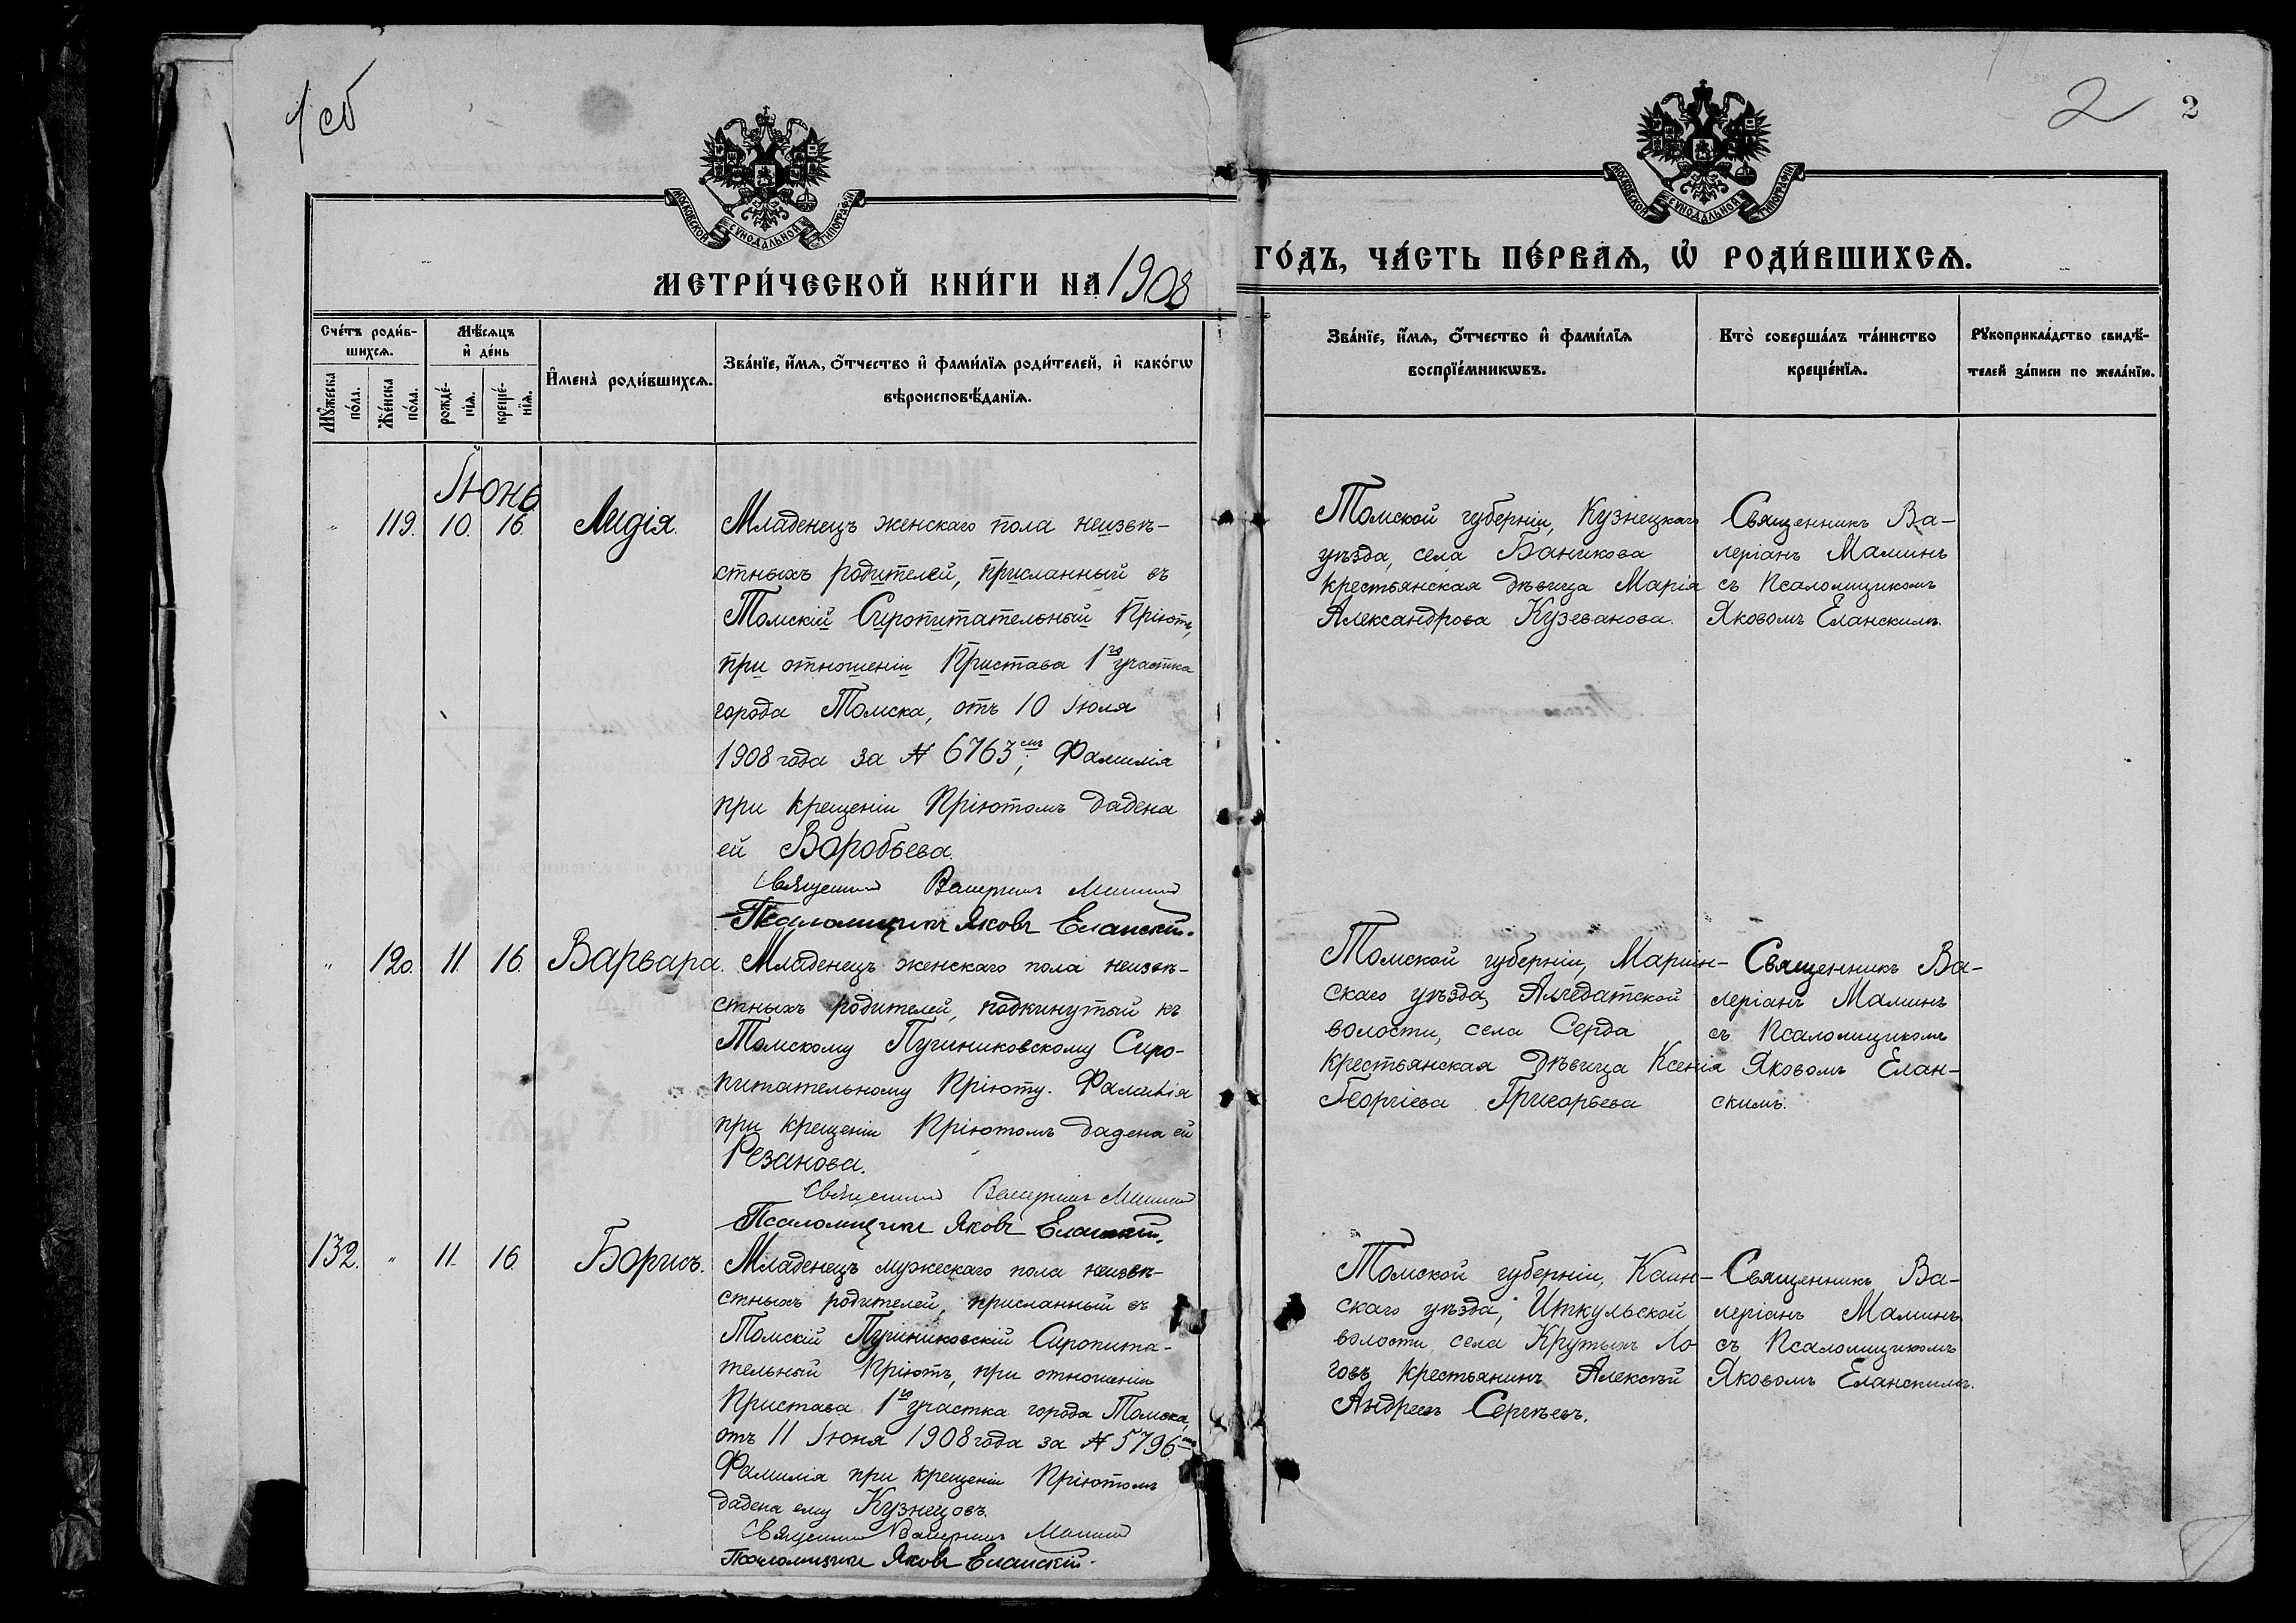 1 об
2
2
МОСКОВСКОЙ СѴНОДАЛЬНОЙ ТИПОГРАФІИ
МОСКОВСКОЙ СѴНОДАЛЬНОЙ ТИПОГРАФІИ
МЕТРИ́ЧЕСКОЙ КНИ́ГИ НА 1908
ГО́ДЪ, ЧА́СТЬ ПЕ́РВАѦ, Ѡ҆ РОДИ́ВШИХСѦ.
Сче́тъ роди́в-
шихсѧ.
Мꙋ́жеска
по́ла.
Же́нска
по́ла.
Мѣ́сѧцъ
и҆ де́нь
рожде́-
нїѧ.
креще́-
нїѧ.
И҆мена̀ роди́вшихсѧ.
Зва́нїе, и҆́мѧ, ѻ҆́тчество и҆ фами́лїѧ роди́телей, и҆ како́гѡ
вѣроисповѣ́данїѧ.
Зва́нїе, и҆́мѧ, ѻ҆́тчество и҆ фами́лїѧ
воспрїе́мникѡвъ.
Кто̀ соверша́лъ та́инство
креще́нїѧ.
Рꙋкоприкла́дство свидѣ́-
телей за́писи по жела́нїю.
Іюнь
" 119. 10. 16. Лидія.
Младенецъ женскаго пола неизвѣ-
стныхъ родителей, присланный въ
Томскій Сиропитательный Пріютъ,
при отношеніи Пристава 1го участка
города Томска, отъ 10 Іюля
1908 года за № 6763ем; Фамилія
при крещеніи Пріютомъ дадена
ей Воробьева.
Священникъ Валеріанъ Маминъ
Псаломщикъ Яковъ Еланскій.
Томской губерніи, Кузнецкаго
уѣзда, села Баникова
крестьянская дѣвица Марія
Александрова Кузеванова.
Священникъ Ва-
леріанъ Маминъ
съ Псаломщикомъ
Яковомъ Еланскимъ.
" 120. 11. 16. Варвара.
Младенецъ женскаго пола неизвѣ-
стныхъ родителей, подкинутый къ
Томскому Пушниковскому Сиро-
питательному Пріюту. Фамилія
при крещеніи Пріютомъ дадена ей
Резанова.
Священникъ Валеріанъ Маминъ
Псаломщикъ Яковъ Еланскій.
Томской губерніи, Маріин-
скаго уѣзда, Алчедатской
волости, села Серда
крестьянская дѣвица Ксенія
Георгіева Григорьева
Священникъ Ва-
леріанъ Маминъ
съ Псаломщикомъ
Яковомъ Елан-
скимъ.
132. " 11. 16. Борисъ.
Младенецъ мужескаго пола неизвѣ-
стныхъ родителей, присланный въ
Томскій Пушниковскій Сиропита-
тельный Пріютъ, при отношеніи
Пристава 1го участка города Томска,
отъ 11 Іюня 1908 года за № 5796
Фамилія при крещеніи Пріютомъ
дадена ему Кузнецовъ.
Священникъ Валеріанъ Маминъ
Псаломщикъ Яковъ Еланскій.
Томской губерніи, Каин-
скаго уѣзда, Иткульской
волости, села Крутыхъ Ло-
говъ крестьянинъ Алексѣй
Андреевъ Сергѣевъ.
Священникъ Ва-
леріанъ Маминъ
съ Псаломщикомъ
Яковомъ Еланскимъ.